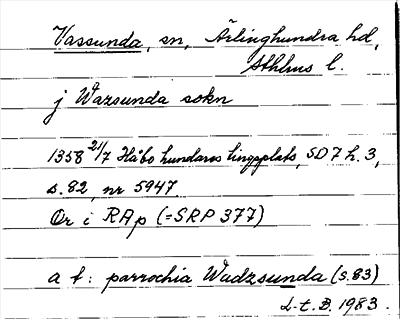 Vassunda, sn, Ärlinghundra hd,
Sthlms l.
j Wazsunda sokn
1358 21/7 Håbo hundares tingsplats, SD 7 h. 3,
s. 82, nr 5947
Or i RAp (=SRP 377)
a t: parrochia Wadzsunda (s. 83)
L-t. B. 1983.